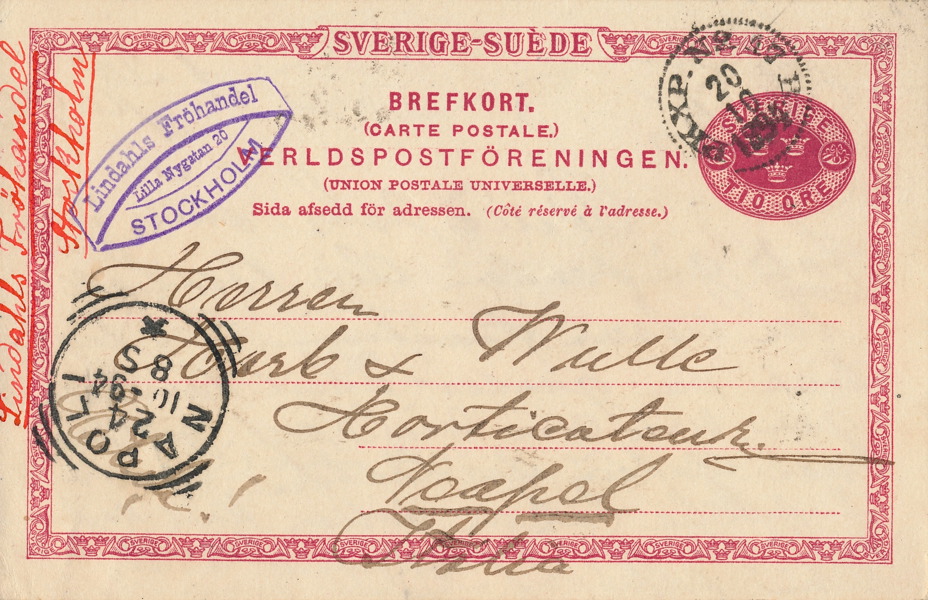 SVERIGE-SUÈDE
BREFKORT.
(CARTE POSTALE.)
VERLDSPOSTFÖRENINGEN.
(UNION POSTALE UNIVERSELLE.)
Sida afsedd för adressen. (Côté réservé à l'adresse.)
SVERIGE
TIO ÖRE
Lindahls Fröhandel
Lilla Nygatan 20
STOCKHOLM
Lindahls Fröhandel
Stockholm
Herren
&
Wulle
Horticateur.
Neapel
Italia
NAPOLI
24
10 94
8 S
PKXP. No
20